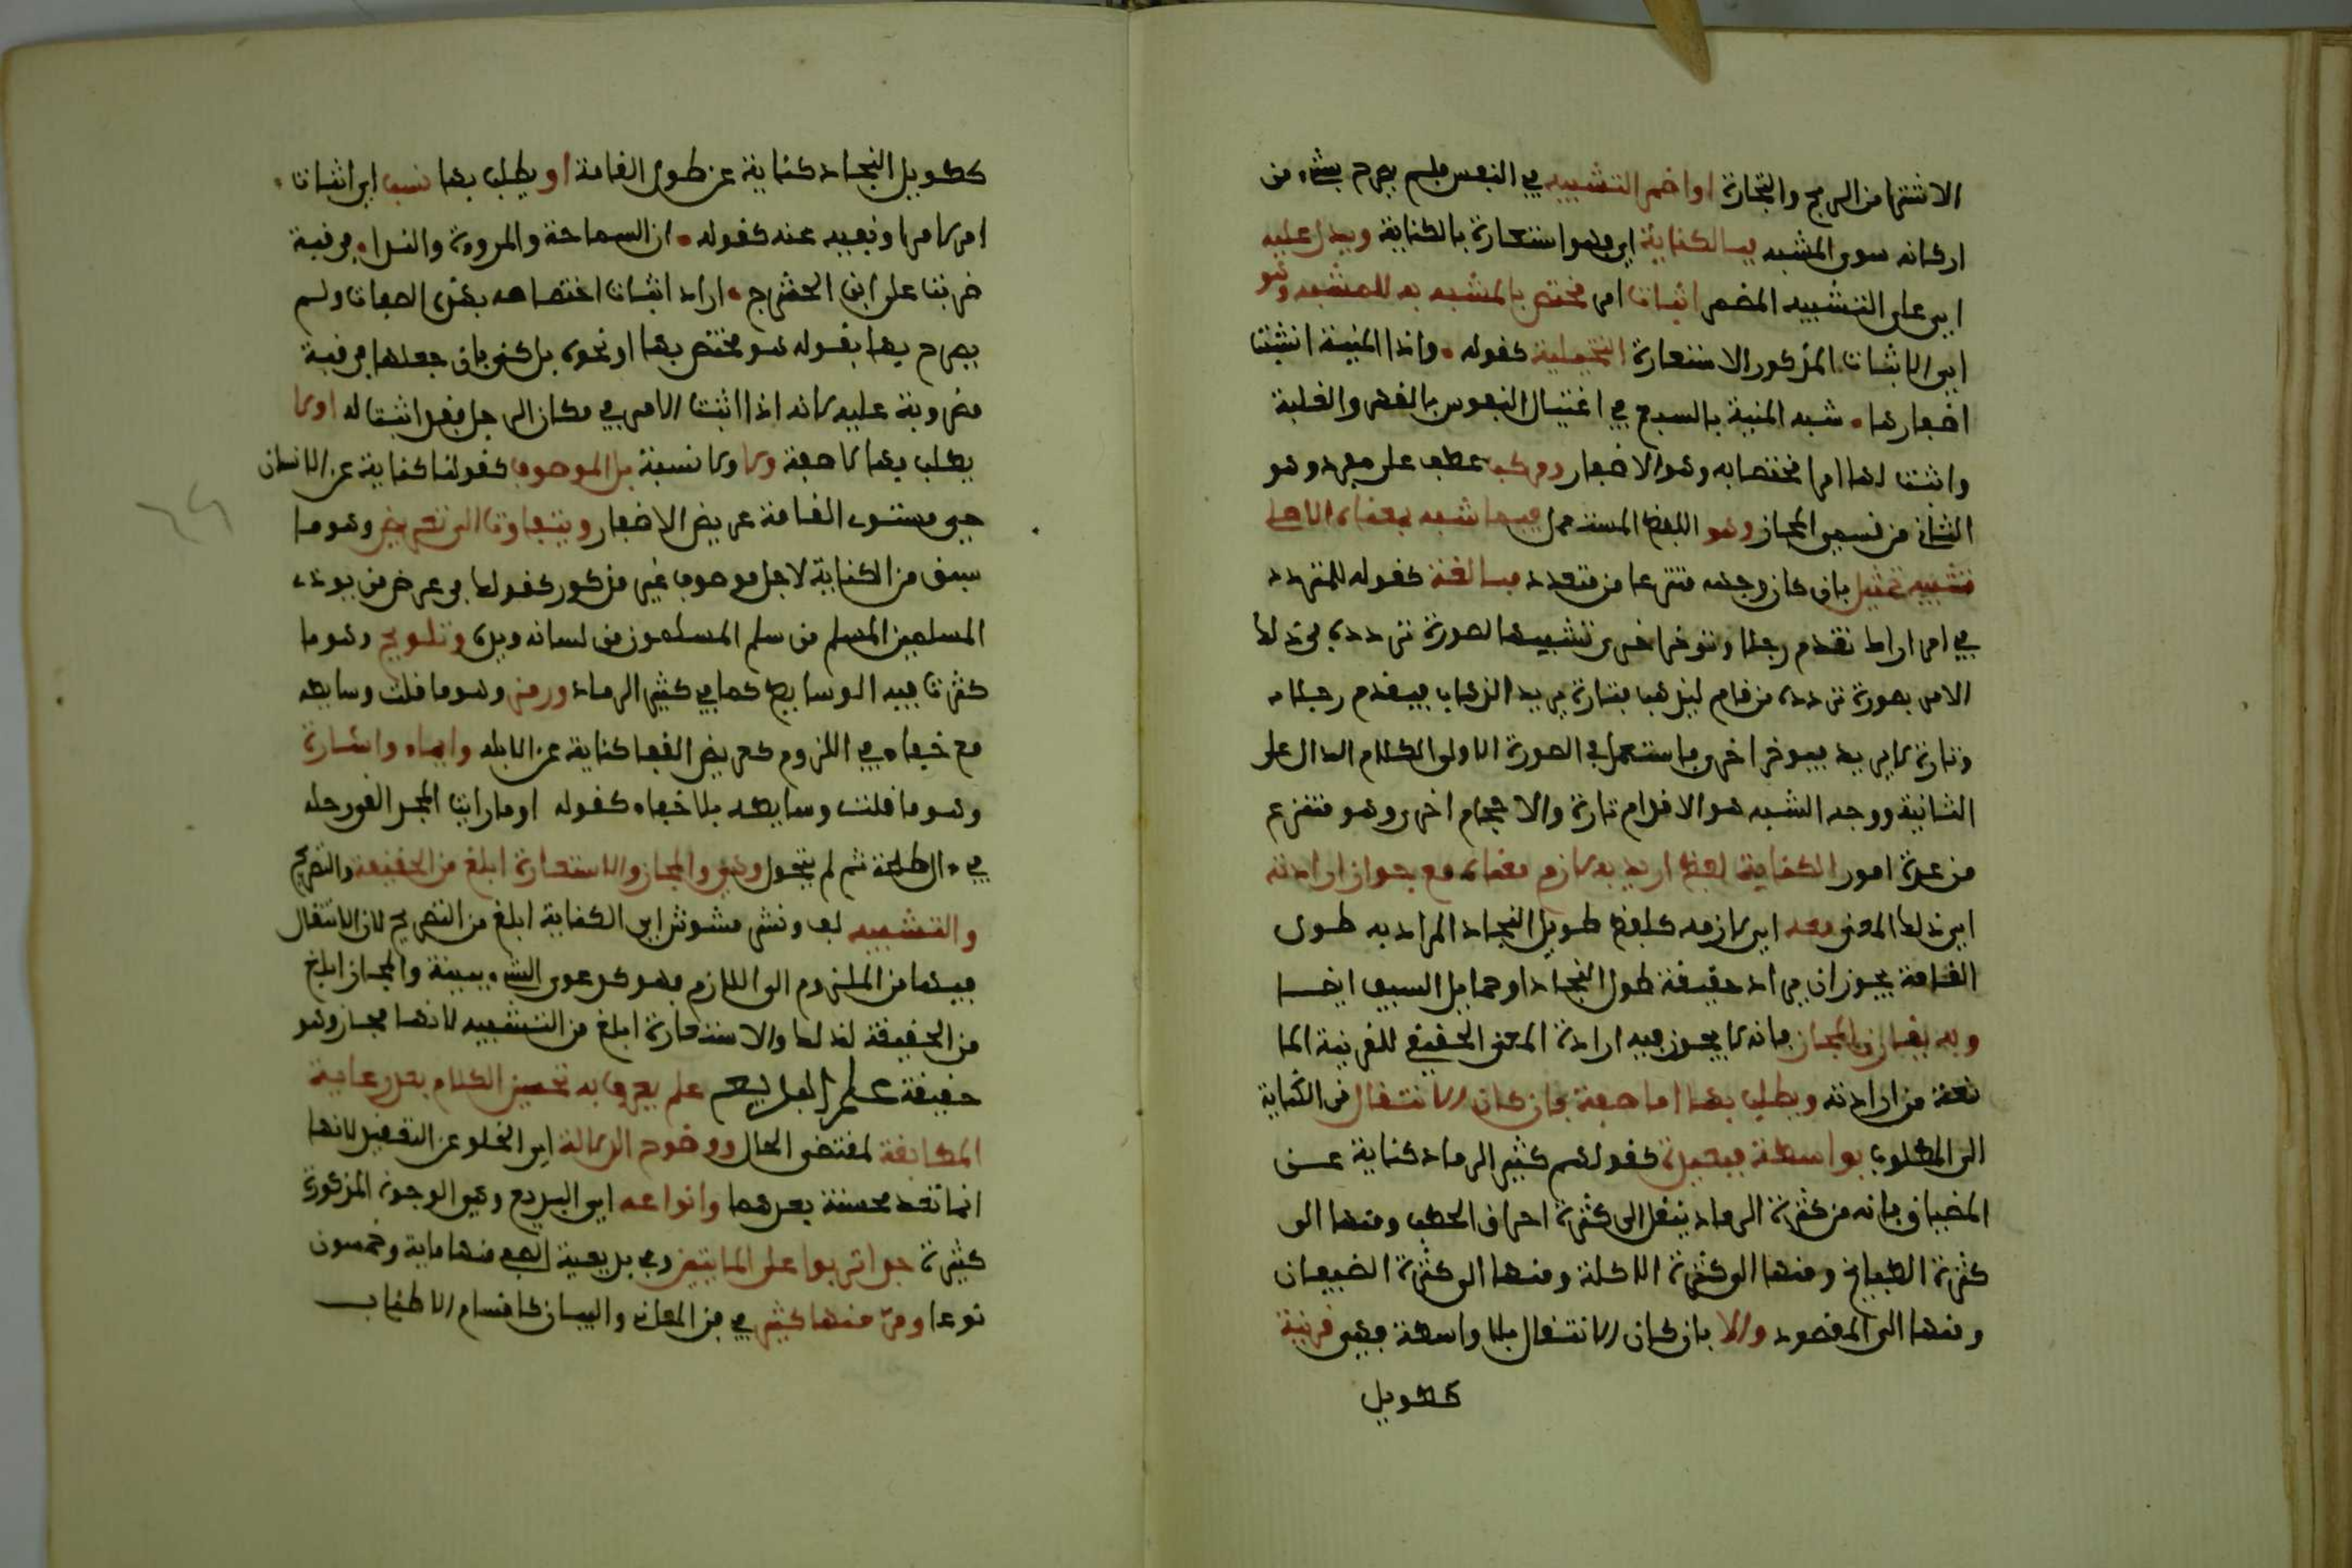 الاشترا من الربح والتجارة او اضمر التشبيه في النفس فلم يصرح بشيء من
اركانه سوى المشبه فبالكناية اي فهو استعارة بالكناية ويدل عليه
اي على التشبيه المضمر اثبات امر مختص بالمشبه به للمشبه وهو
اي الاثبات المذكور الاستعارة التخييلية كقوله • واذا المنية انشبت
اظفارها • شبه المنية بالسبع في اغتيال النفوس بالقهر والغلبة
واثبت لها امرا مختصا به وهو الاظفار ومركب عطف على مفرد وهو
الثاني من قسمي المجاز وهو اللفظ المستعمل فيما شبه بمعناه الاصلي
تشبيه تمثيل بان كان وجهه منتزعا من متعدد مبالغة كقوله للمتردد
في امر اراك تقدم رجلا وتؤخر اخرى تشبيها لصورة تردده في ذلك
الامر بصورة تردد من قام ليذهب فتارة يريد الذهاب فيقدم رجلا
وتارة لا يريد فيؤخر اخرى فاستعمل في الصورة الاولى الكلام الدال على
الثانية ووجه الشبه هو الاقدام تارة والاحجام اخرى وهو منتزع
من عدة امور الكناية لفظ اريد به لازم معناه مع جواز ارادته
اي ذلك المعنى معه اي لازمه كلفظ طويل النجاد المراد به طول
القامة يجوز ان يراد حقيقة طول النجاد او حمايل السيف ايضا
وبه يفارق المجاز فانه لا يجوز فيه ارادة المعنى الحقيقي للقرينة الما
نعة من ارادته ويطلب بها اما صفة فان كان الانتقال من الكناية
الى المطلوب بواسطة فبعيدة كقولهم كثير الرماد كناية عن
المضياف فانه من كثرة الرماد ينتقل الى كثرة احراق الحطب ومنها الى
كثرة الطبايخ ومنها الى كثرة الاكلة ومنها الى كثرة الضيفان
ومنها الى المقصود والا بان كان الانتقال بلا واسطة فهي قريبة
كطويل
كطويل النجاد كناية عن طول القامة او يطلب بها نسبة اي اثبات
امر لامر او نفيه عنه كقوله • ان السماحة والمروءة والندا • في قبة
ضربت على ابن الحشرج • اراد اثبات اختصاصه بهذه الصفات ولم
يصرح بها بقوله هو مختص بها او نحوه بل كنى بان جعلها في قبة
مضروبة عليه لانه اذا اثبت الامر في مكان الرجل فقد اثبت له اولا
يطلب بها لا صفة ولا ولا نسبة بل الموصوف كقولنا كناية عن الانسان
حي مستوى القامة عريض الاظفار ويتفاوت الى تعريض وهو ما
سيق من الكناية لاجل موصوف غير مذكور كقولك في عرض من يوذي
المسلمين المسلم من سلم المسلمون من لسانه ويده وتلويح وهو ما
كثرت فيه الوسايط كما في كثير الرماد ورمز وهو ما قلت وسايطه
مع خفاء في اللزوم كعريض القفا كناية عن الابله وايماء واشارة
وهو ما قلت وسايطه بلا خفاء كقوله اوما رايت المجد القى رحله
في ءال طلحة ثم لم يتحول وهي والمجاز والاستعارة ابلغ من الحقيقة والتصريح
والتشبيه لف ونشر مشوش اي الكناية ابلغ من التصريح لان الانتقال
فيها من الملزوم الى اللازم فهو كدعوى الشيء ببينة والمجاز ابلغ
من الحقيقة لذلك والاستعارة ابلغ من التشبيه لانها مجاز وهو
حقيقة علم البديع علم يعرف به تحسين الكلام بعد رعاية
المطابقة لمقتضى الحال ووضوح الدلالة اي الخلو عن التعقيد لانها
انما تعد محسنة بعدهما وانواعه اي البديع وهي الوجوه المذكورة
كثيرة جدا تربوا على المايتين وفي بديعية الصفي منها ماية وخمسون
نوعا ومر منها كثير في فن المعاني والبيان كاقسام الاطناب